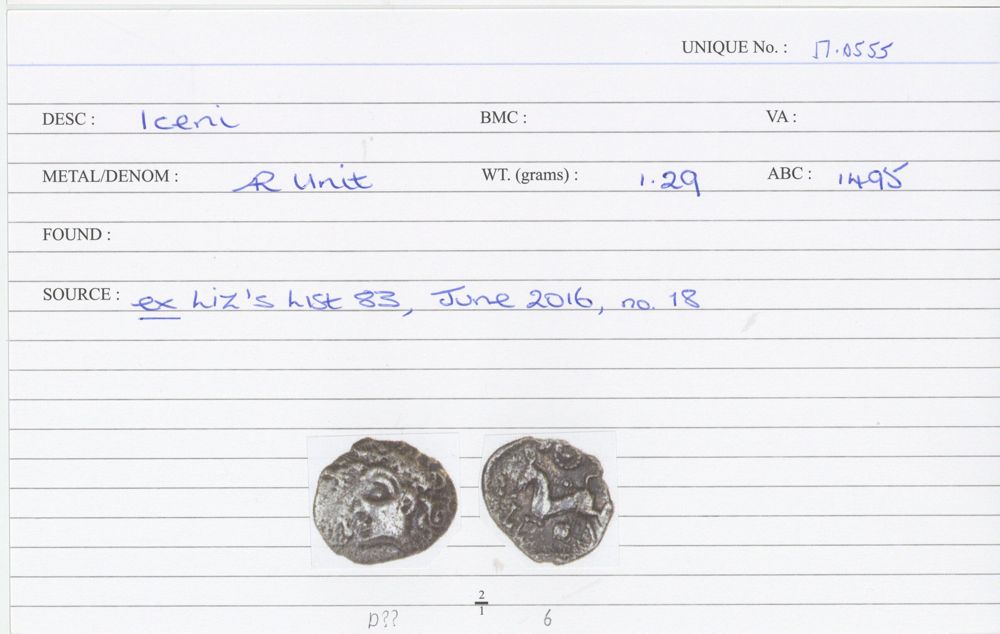 UNIQUE No. : 17.0555
DESC : Iceni BMC : VA :
METAL/DENOM : AR Unit WT. (grams) : 1.29 ABC : 1495
FOUND :
SOURCE : ex Liz's List 83, June 2016, no. 18
2
1
D?? 6